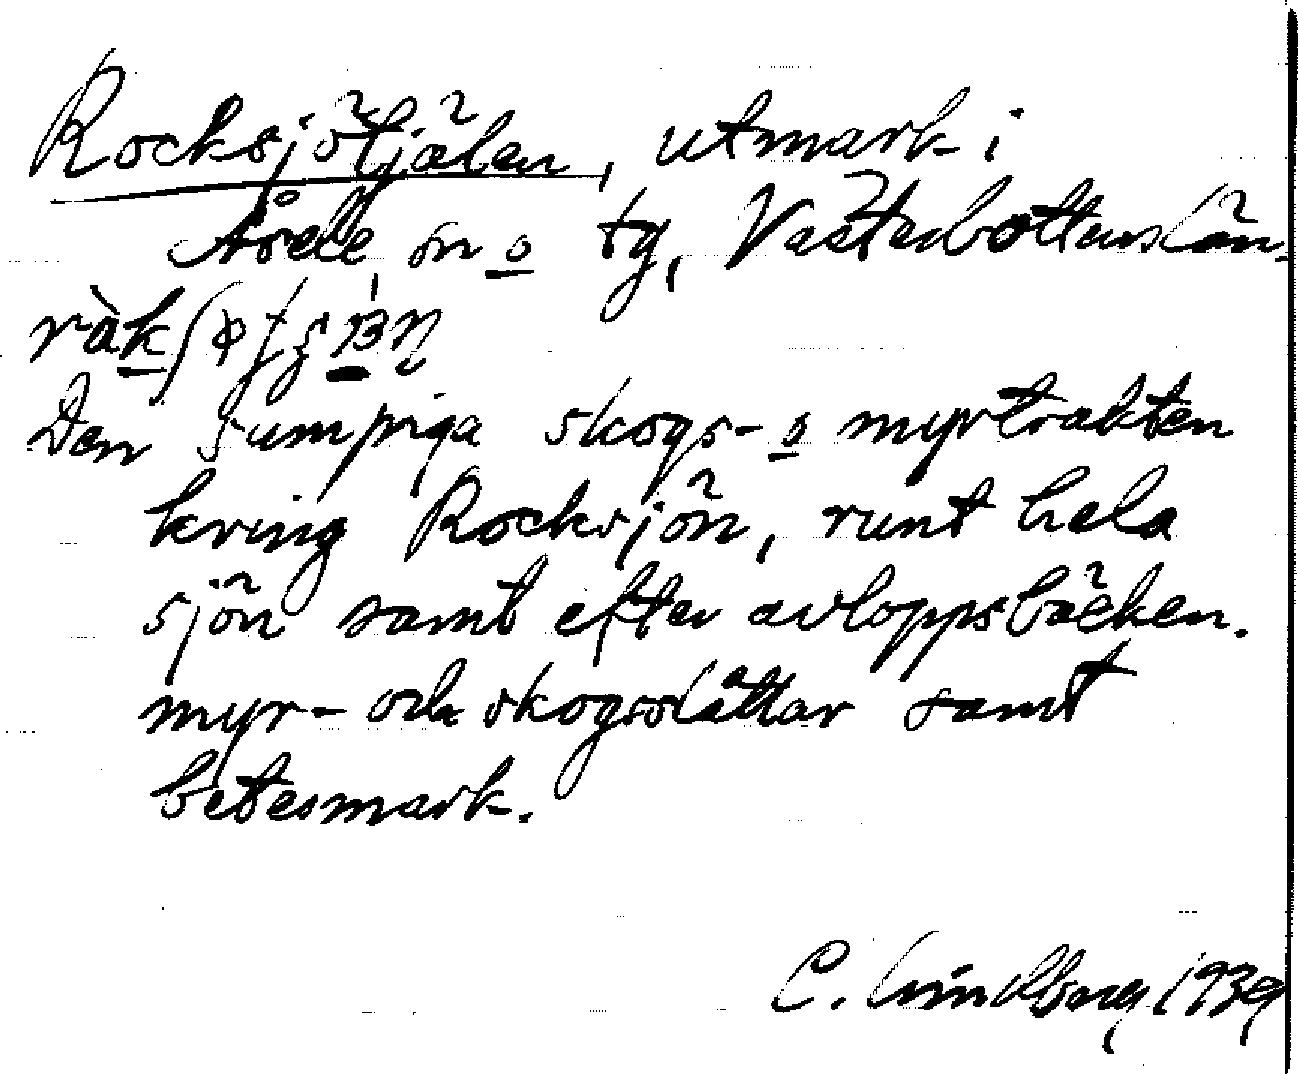 Rocksjötjälen, utmark i
Åsele, sn o tg, Västerbottenslän.
Den sumpiga skogs- o myrtrakten
kring Rocksjön, runt hela
sjön samt efter avloppsbäcken.
myr- och skogsslåttar samt
betesmark.
C. Lindberg 1939